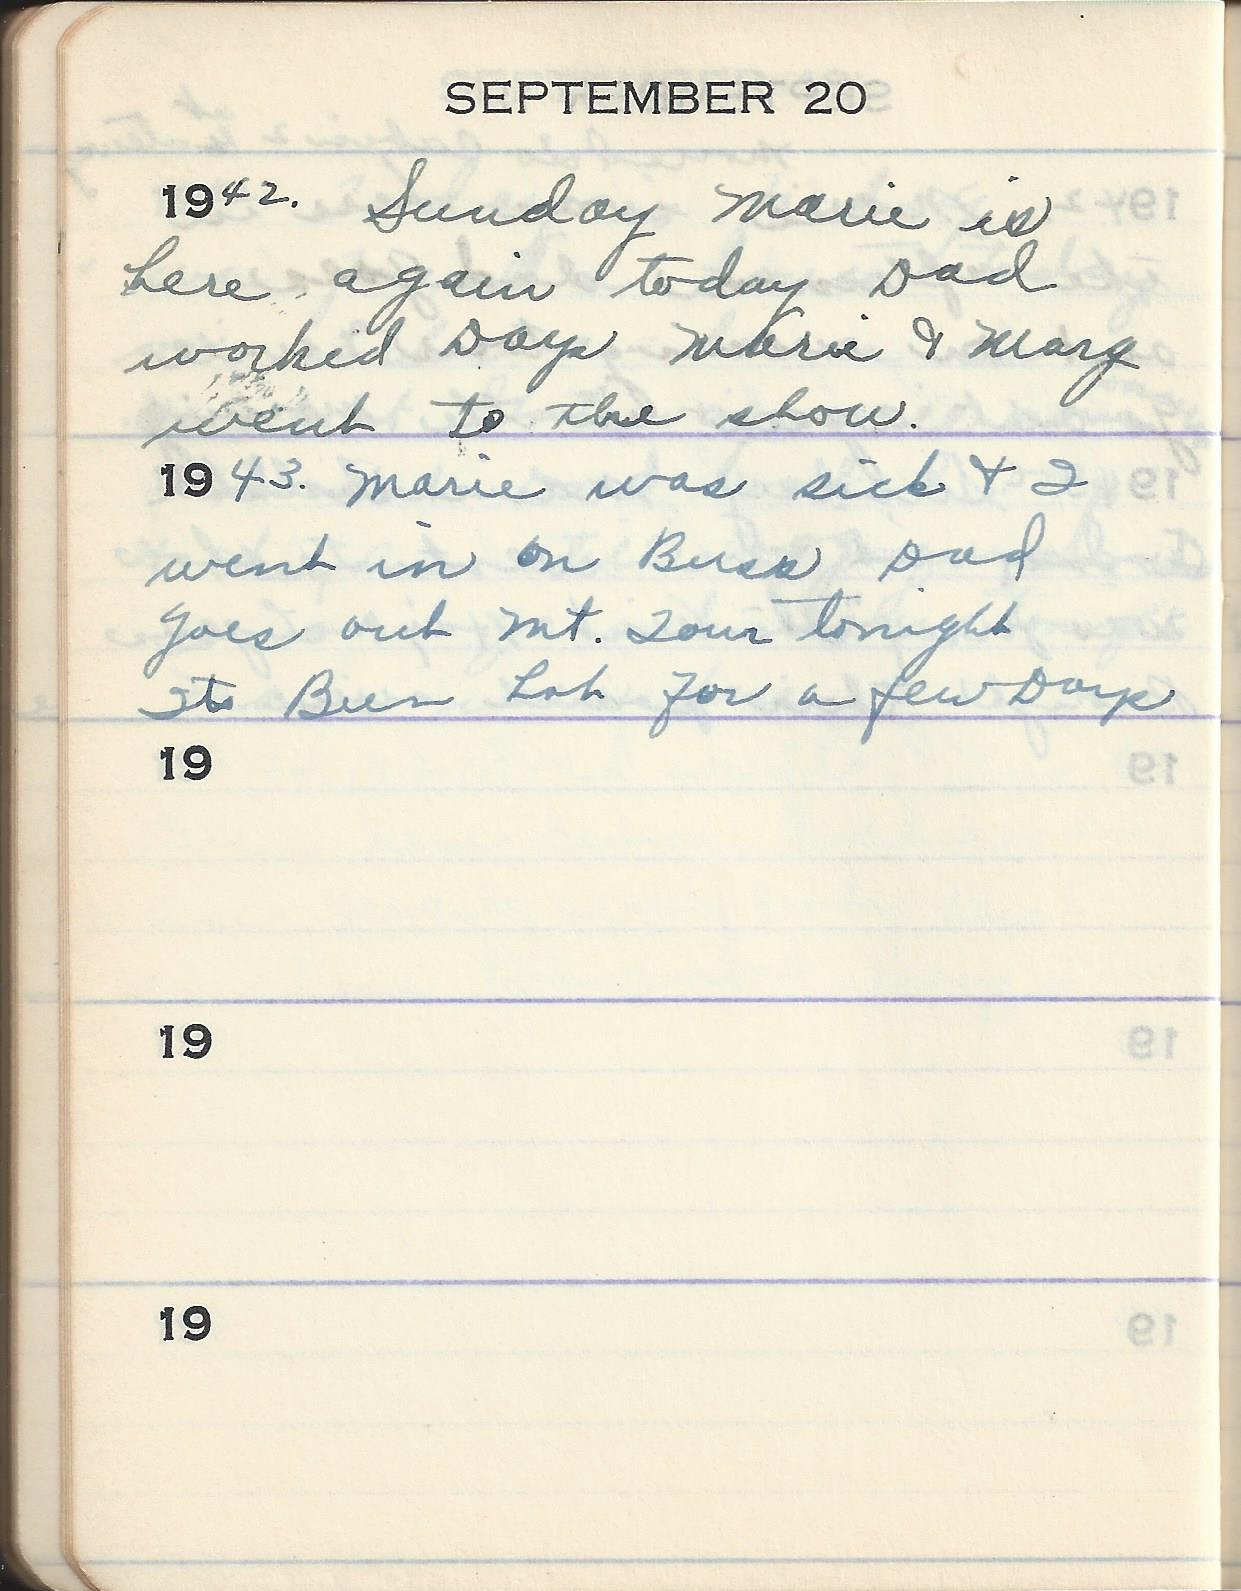 SEPTEMBER 20
1942. Sunday Marie is
here again today Dad
worked Days Marie & Marg
went to the show.
1943. Marie was sick & I
went in on Buss Dad
goes out Mt. Tour tonight
Its Been hot for a few Days
19
19
19